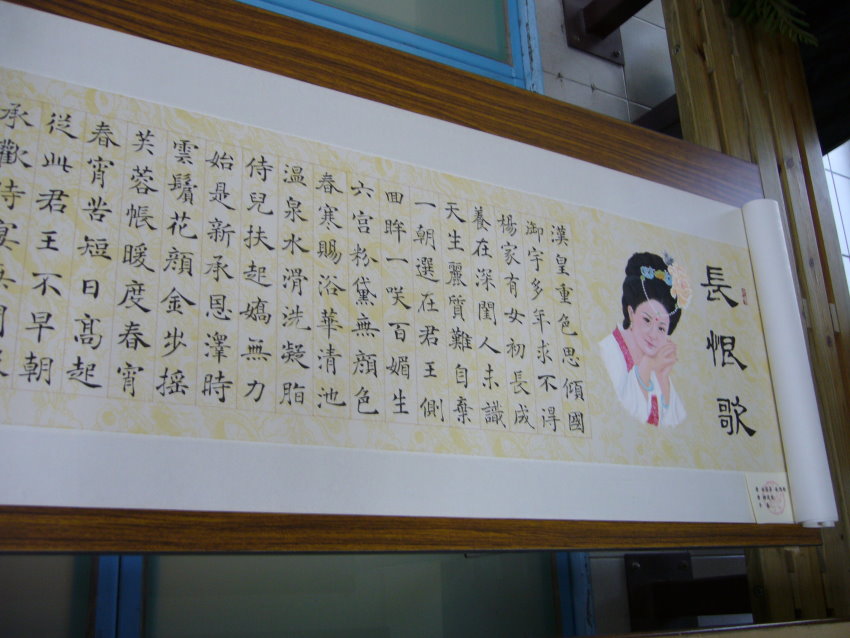 長恨歌
漢皇重色思傾國
御宇多年求不得
楊家有女初長成
養在深閨人未識
天生麗質難自棄
一朝選在君王側
回眸一笑百媚生
六宮粉黛無顏色
春寒賜浴華清池
溫泉水滑洗凝脂
侍兒扶起嬌無力
始是新承恩澤時
雲鬢花顏金步搖
芙蓉帳暖度春宵
春宵苦短日高起
從此君王不早朝
承歡侍